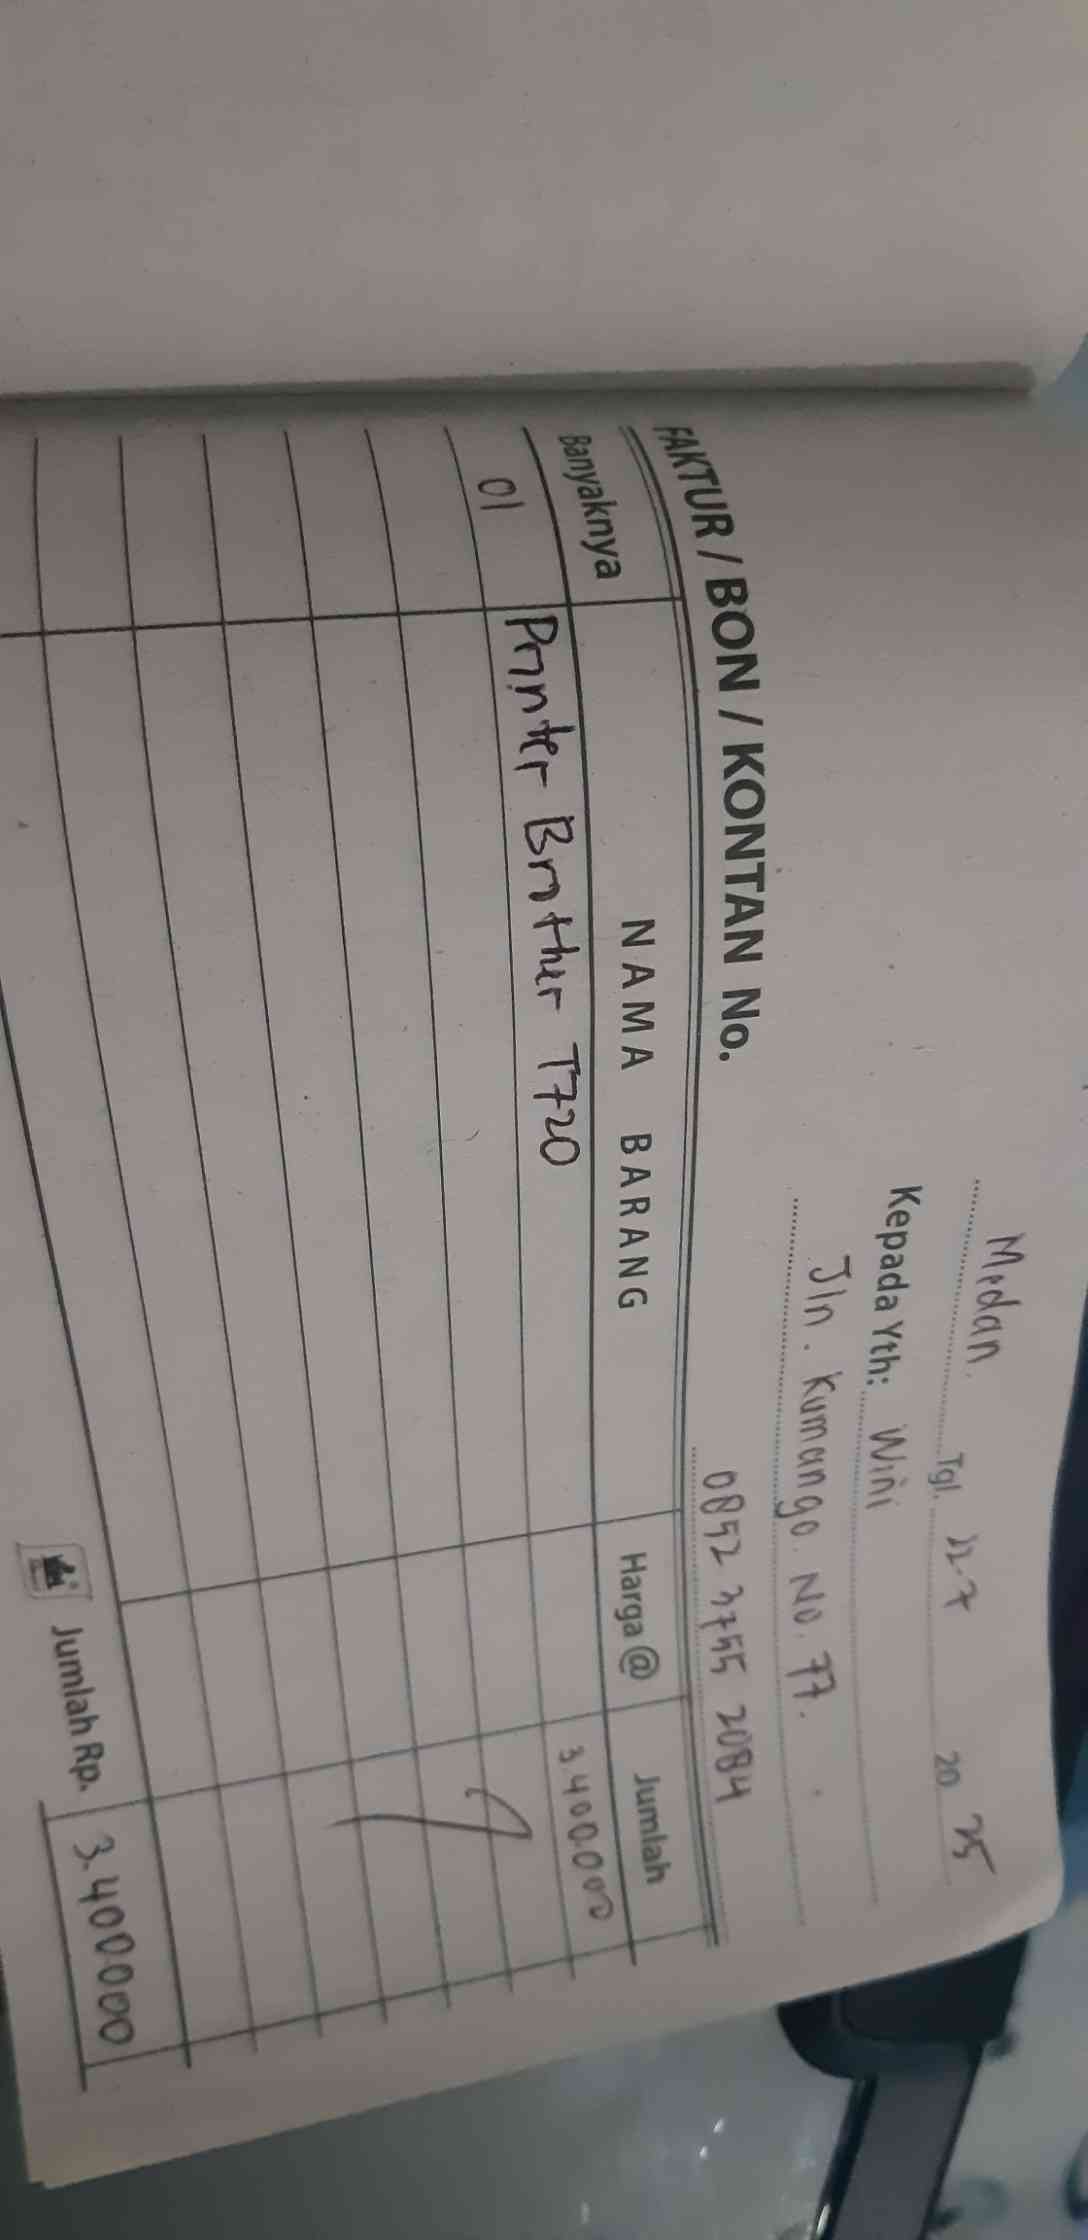 Medan Tgl. 22-7 20 25
Kepada Yth: Wini
Jln. Kumango. No. 77.
0852 3755 2084
FAKTUR / BON / KONTAN No.
Banyaknya NAMA BARANG Harga @ Jumlah
01 Printer Brother T720 3.400.000
Jumlah Rp. 3.400.000